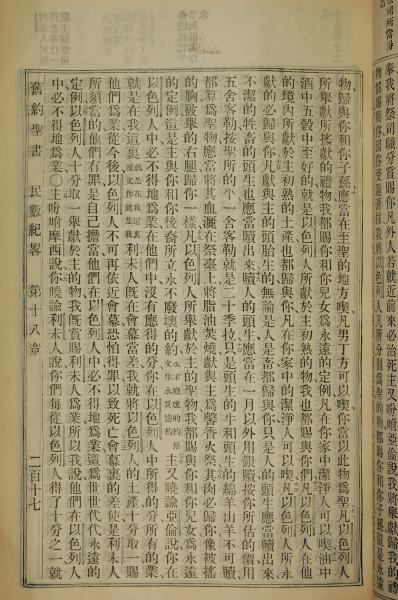 奉我將祭司職分賞賜你凡外人若就近前來必治死主又吩咐亞倫說我將歸我的禮
物歸與你和你子孫應當在至聖的地方喫凡男丁方可以喫你當以此物爲聖凡以色列人
所舉獻所搖獻的禮物我都賜與你和你兒女爲永遠的定例凡在你家中潔淨人可以喫油中
酒中五穀中至好的就是以色列人所獻於主初熟的物我也都歸與你們凡以色列人在他
的境內所獻於主初熟的土產也都歸與你凡在你家中的潔淨人可以喫凡以色列人所永
獻的必歸與你凡獻與主的頭胎生的無論是人是畜都歸與你只是人的頭生應當贖出來
不潔的牲畜的頭生也應當贖出來贖人的頭生應當在一月以外用銀贖按你所估的價用
五舍客勒按聖所的平一舍客勒就是二十季拉只是頭生的牛和頭生的綿羊山羊不可贖
都算爲聖物應當將其血灑在祭臺上將脂油焚燒獻與主爲馨香火祭其肉必歸你像被搖
的胸被舉的右腿歸你一樣凡以色列人所舉獻與主的聖物我都賜與你和你兒女爲永遠
的定例這是主與你和你後裔所立永不廢壞的約永不廢壞的約原文作永爲鹽約主又曉諭亞倫說你在
以色列人中必不得地爲業在他們中沒有應得的分你在以色列人中所得的分所有的業
就是在我這裏利未人既在會幕當差我就將以色列人的土產十分取一賜
他們爲業從今以後以色列人不可再依近會幕恐怕得罪以致死亡會幕裏的差使是利未人
所須當的他們有罪是自己擔當他們在以色列人中必不得地爲業這爲世世代代永遠的
定例以色列人十分取一舉獻於主的物我既賞賜利未人爲業所以我說他們在以色列人
中必不得地爲業○主吩咐摩西說你曉諭利未人說你們每從以色列人得了十分之一就
舊約聖書 民數紀畧 第十八章 二百十七